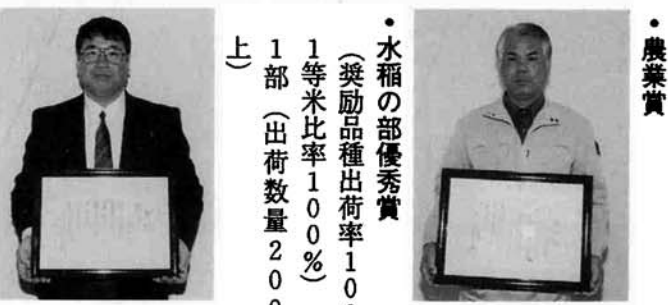 ・農業賞
・水稲の部優秀賞
（奨励品種出荷率10
1等米比率100%）
1部（出荷数量20
上）